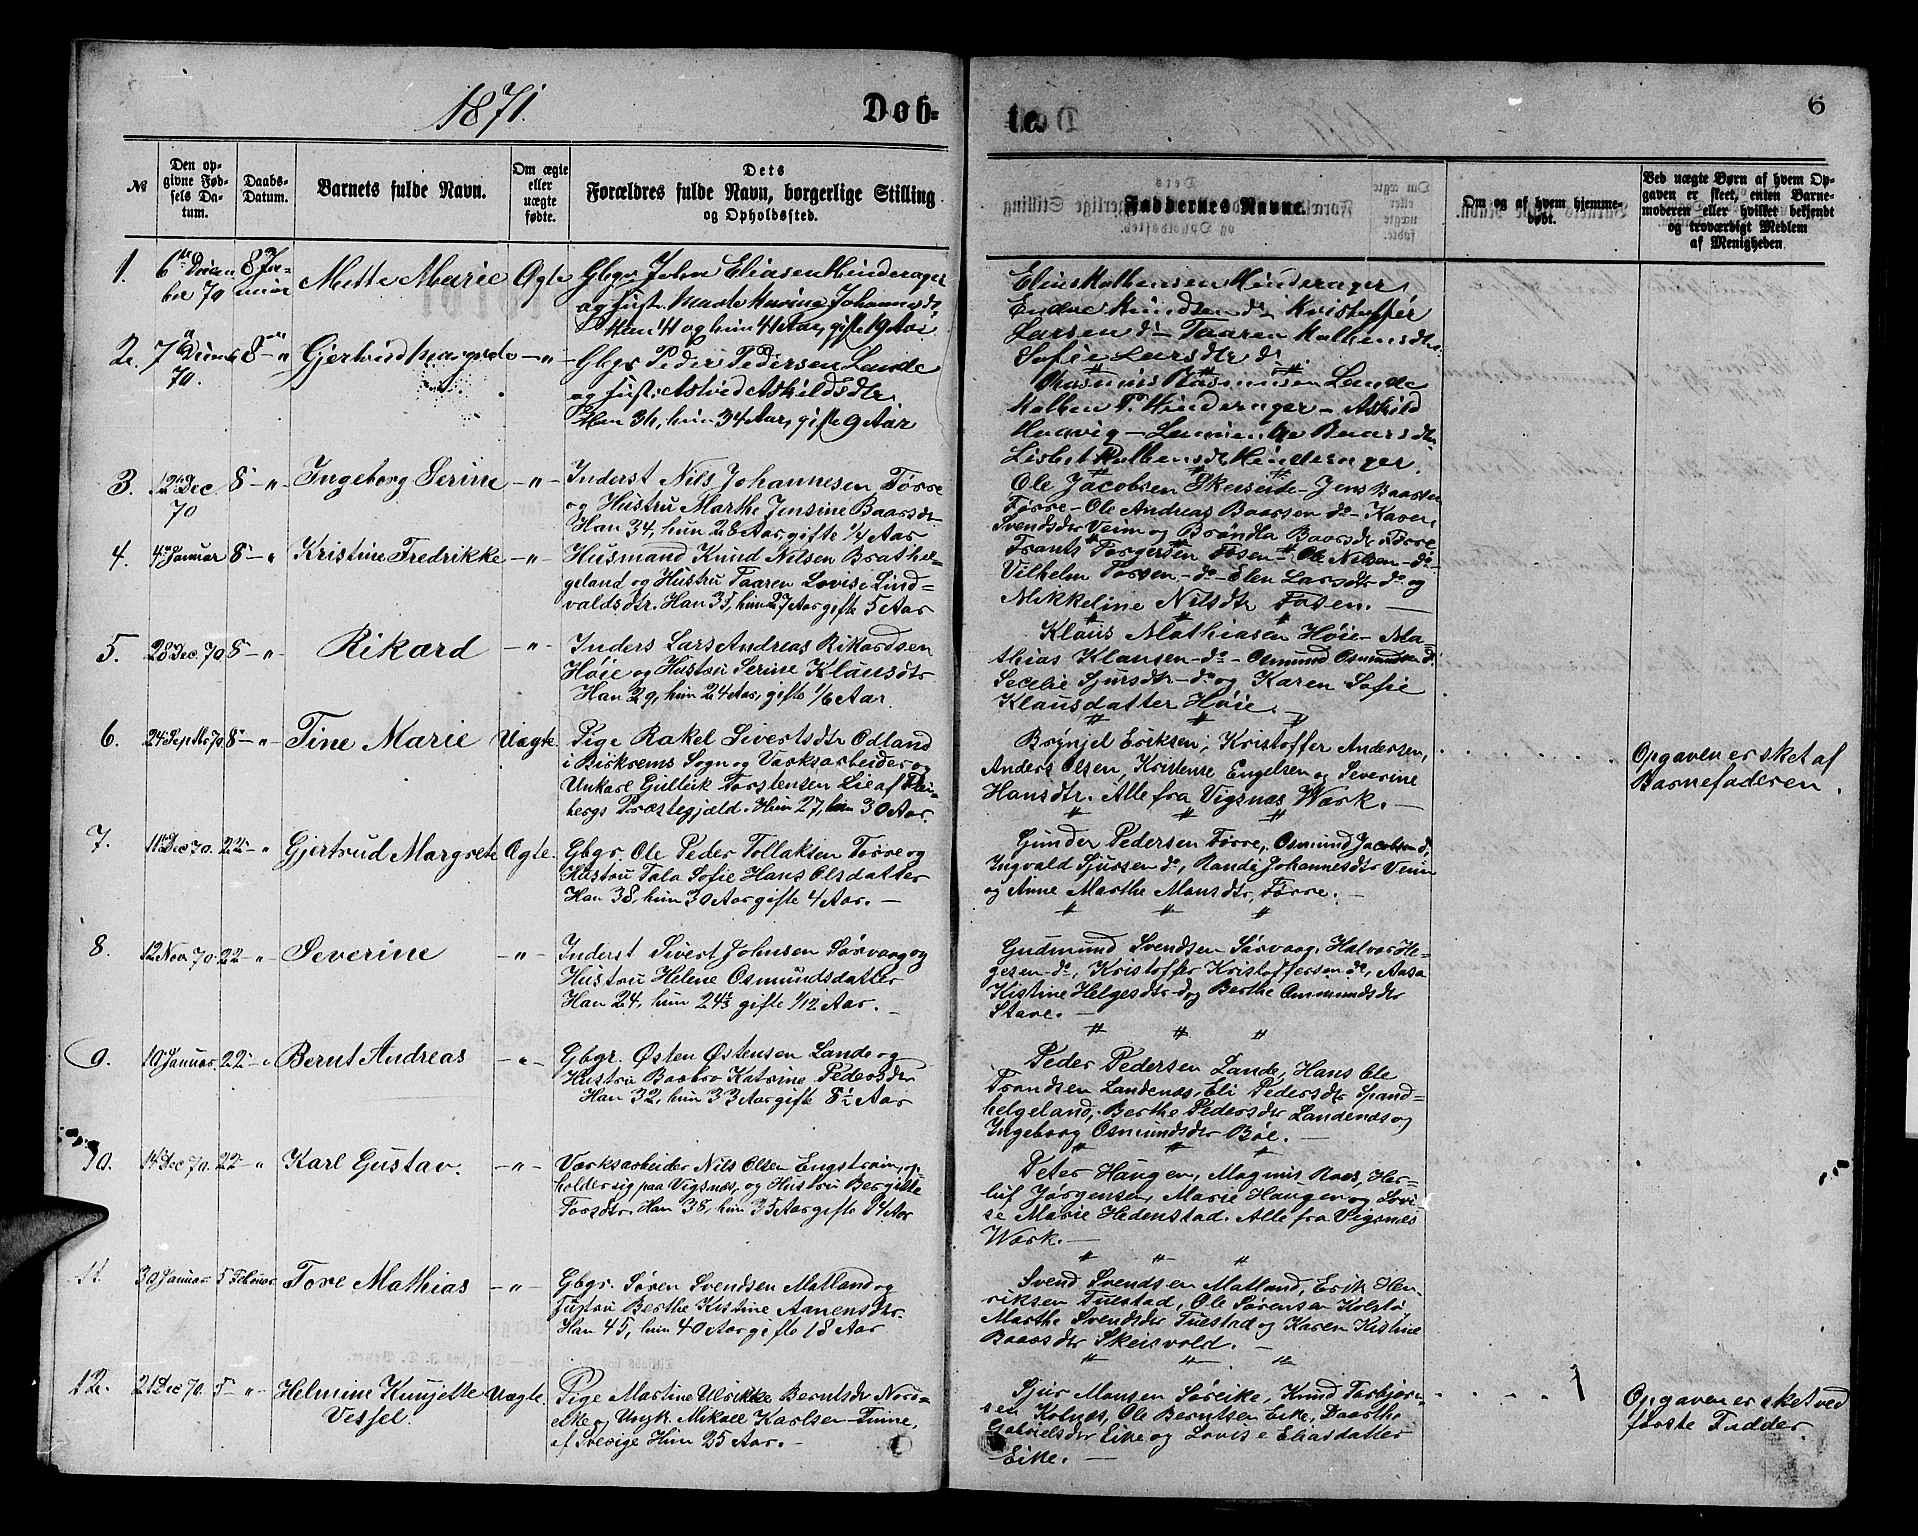 1871.
Døb=
te.
6
№
Den op-
givne Fød-
sels Da-
tum.
Daabs-
Datum.
Barnets fulde Navn.
Om ægte
eller
uægte
fødte.
Dets
Forældres fulde Navn, borgerlige Stilling
og Opholdssted.
Faddernes Navne.
Om og af hvem hjemme-
døbt.
Ved uægte Børn af hvem Op-
gaven er skeet, enten Barne-
moderen eller hvilket bekjendt
og troværdigt Medlem
af Menigheden.
1.
6te Decem
ber 70
8 Ja-
nuar
Mette Marie
Ægte
Gbgr John Eliasen Hinderager
og Hust. Marte Karine Johannesd:
Han 41 og hun 41 Aar, gifte 19 Aar
Elias Malkensen Hinderager,
Endre Knudsen do Kristoffer
Larsen do Taaren Malkensdtr
Sofie Larsdtr do
2.
7de Decemb
70.
8 — "
Gjertrud Margrete
— " —
Gbgr Peder Pedersen Lande
og Hust. Astrid Askildsdtr
Han 36, hun 34 Aar, gifte 9 Aar
Rasmus Rasmussen Lande
Malken P. Hinderager — Askild
Baarsdtr
Lisbet Malkensdtr Hinderager.
3.
12te Dec
70
8 — "
Ingeborg Serine
— " —
Inderst Nils Johannesen Førre
og Hustru Marthe Jensine Baarsdtr
Han 34, hun 28 Aar gifte 1/4 Aar
Ole Jacobsen Skeiseide — Jens Baarsen
Førre — Ole Andreas Baarsen do — Karen
Svendsdtr Veim og Brønla Baarsdtr Førre
4.
4de Januar
8 — "
Kristine Fredrikke
— " —
Husmand Knud Nilsen Brathel-
geland og Hustru Taaren Lovise Lind-
valdsdtr. Han 35, hun 27 Aar gifte 5 Aar
Frants Torgersen Fosen — Ole Nilsen — do
Vilhelm Torsen — do — Elen Larsdtr do og
Mikkeline Nilsdtr Fosen. —
5.
28 Dec 70
8 — "
Rikard
— " —
Inders Lars Andreas Rikardsen
Høie og Hustru Serine Klausdtr
Han 29, hun 24 Aar, gifte 1/6 Aar.
Klaus Mathiasen Høie — Ma-
thias Klausen — do — Osmund Osmundsen do
Secelie Sjursdtr — do og Karen Sofie
Klausdatter Høie.
6.
24 Septbr 70
8 — "
Tine Marie
Uægte.
Pige Rakel Sivertsdtr Odland
i Birkrems Sogn og Værksarbeider og
Unkarl Gullerik Torstensen Lie af Fles-
bergs Præstegjæld. Hun 27, han 30 Aar.
Brynjel Eriksen, Kristoffer Andersen,
Anders Olsen, Kristense Engelsen og Severine
Hansdtr. Alle fra Vigsnæs Værk. —
Opgaven er sket af
Barnefaderen.
7.
11 Dec 70.
22 — "
Gjertrud Margrete
Ægte.
Gbgr. Ole Peder Tollaksen Førre og
Hustru Tala Sofie Hans Olsdatter
Han 38, hun 30 Aar gifte 4 Aar. —
Gunder Pedersen Førre, Osmund Jacobsen do
Ingvald Sjursen do, Randi Johannesdtr Veim
og Anne Marthe Mansdtr, Førre. —
8.
12 Nov 70.
22 — "
Severine
— " —
Inderst Sivert Johnsen Sørvaag og
Hustru Helene Osmundsdatter
Han 24, hun 24½ gifte 1/12 Aar. —
Gudmund Svendsen Sørvaag, Halvor Hel-
gesen — do, Kristoffer Kristoffersen do, Aasa
Kistine Helgesdtr — do og Berthe Ommundsdtr
Stave. —
9.
10 Januar.
22 — "
Bernt Andreas
— " —
Gbgr. Østen Østensen Lande og
Hustru Baabro Katrine Pedersdtr
Han 32, hun 33 Aar gifte 8½ Aar
Peder Pedersen Lande, Hans Ole
Trondsen Landenæs, Eli Pedersdtr Spand-
helgeland, Berthe Pedersdtr Landenæs og
Ingeborg Osmundsdtr Bøe. —
10.
14 Dec 70.
22 — "
Karl Gustav.
— " —
Værksarbeider Nils Olsen Engstrøm, op-
holder sig paa Vigsnæs, og Hustru Bergitte
Torsdtr. Han 38, hun 35 Aar gifte 14 Aar
Peter Haugen, Magnus Raas, Her-
luf Jørgensen, Marie Haugen og Lovi-
se Marie Hedenstad. Alle fra Vigsnæs
Værk. —
11.
30 Januar
5 Februar
Tore Mathias
— " —
Gbgr. Søren Svendsen Matland og
Hustru Berthe Kistine Aanensdtr.
Han 45, hun 40 Aar gifte 18 Aar
Svend Svendsen Matland, Erik Hen-
riksen Tuestad, Ole Sørensen Kolstø
Marthe Svendsdtr Tuestad og Karen Kistine
Baarsdtr Skeisvold. —
12.
21 Dec 70.
5 — "
Helmine Knujette
Vessel.
Uægte.
Pige Martine Ulrikke Berntsdtr Nord-
eike og Ungk. Mikael Karlsen Finne,
af Sverige Hun 25 Aar. —
Sjur Monsen Søreike, Knud Torbjørn-
sen Kolnæs, Ole Berntsen Eike, Daarthe
Gabrielsdtr Eike og Lovise Eliasdatter
Eike. —
Opgaven er sket ved
første Fadder.